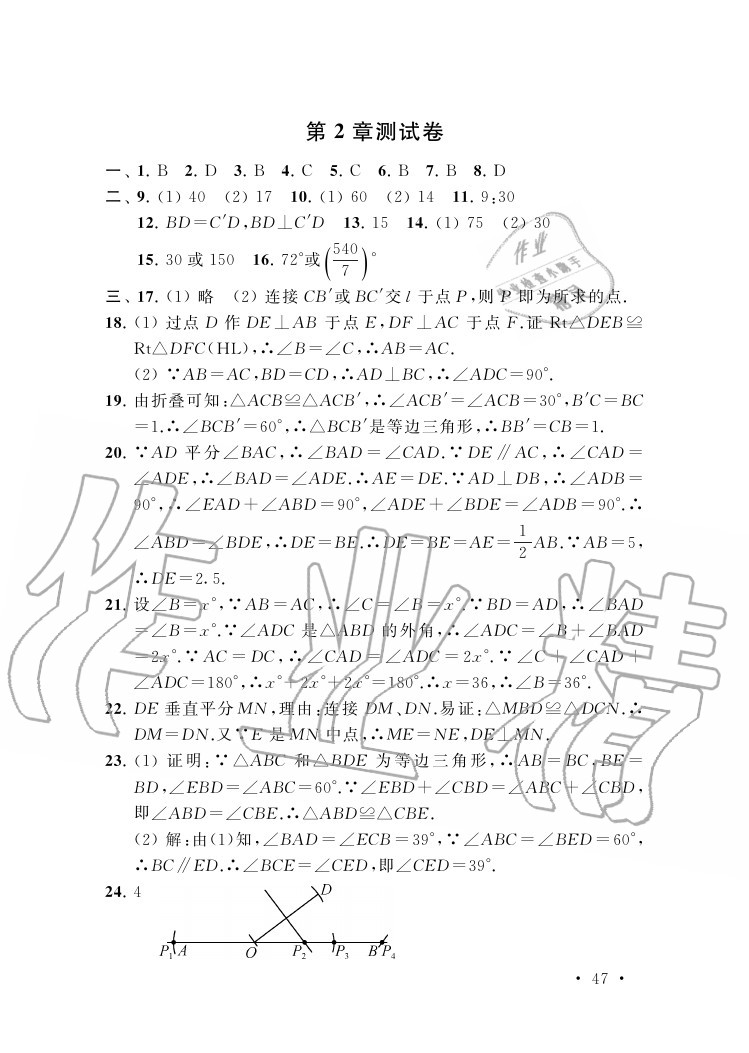 第 2 章测试卷
一、1. B 2. D 3. B 4. C 5. C 6. B 7. B 8. D
二、9. (1) 40 (2) 17 10. (1) 60 (2) 14 11. 9:30
12. BD=C′D,BD⊥C′D 13. 15 14. (1) 75 (2) 30
15. 30 或 150 16. 72°或(540/7)°
三、17. (1) 略 (2) 连接 CB′或 BC′交 l 于点 P,则 P 即为所求的点.
18. (1) 过点 D 作 DE⊥AB 于点 E,DF⊥AC 于点 F.证 Rt△DEB≌
Rt△DFC(HL),∴∠B=∠C,∴AB=AC.
(2) ∵AB=AC,BD=CD,∴AD⊥BC,∴∠ADC=90°.
19. 由折叠可知:△ACB≌△ACB′,∴∠ACB′=∠ACB=30°,B′C=BC
=1.∴∠BCB′=60°,∴△BCB′是等边三角形,∴BB′=CB=1.
20. ∵AD 平分∠BAC,∴∠BAD=∠CAD.∵DE∥AC,∴∠CAD=
∠ADE,∴∠BAD=∠ADE.∴AE=DE.∵AD⊥DB,∴∠ADB=
90°,∴∠EAD+∠ABD=90°,∠ADE+∠BDE=∠ADB=90°.∴
∠ABD=∠BDE,∴DE=BE.∴DE=BE=AE=1/2AB.∵AB=5,
∴DE=2.5.
21. 设∠B=x°,∵AB=AC,∴∠C=∠B=x°.∵BD=AD,∴∠BAD
=∠B=x°.∵∠ADC 是△ABD 的外角,∴∠ADC=∠B+∠BAD
=2x°.∵AC=DC,∴∠CAD=∠ADC=2x°.∵∠C+∠CAD+
∠ADC=180°,∴x°+2x°+2x°=180°.∴x=36,∴∠B=36°.
22. DE 垂直平分 MN,理由:连接 DM、DN.易证:△MBD≌△DCN.∴
DM=DN.又∵E 是 MN 中点,∴ME=NE,DE⊥MN.
23. (1) 证明:∵△ABC 和△BDE 为等边三角形,∴AB=BC,BE=
BD,∠EBD=∠ABC=60°.∵∠EBD+∠CBD=∠ABC+∠CBD,
即∠ABD=∠CBE.∴△ABD≌△CBE.
(2) 解:由(1)知,∠BAD=∠ECB=39°,∵∠ABC=∠BED=60°,
∴BC∥ED.∴∠BCE=∠CED,即∠CED=39°.
24. 4
D
P₁ A O P₂ P₃ B P₄
· 47 ·
作业精
作业